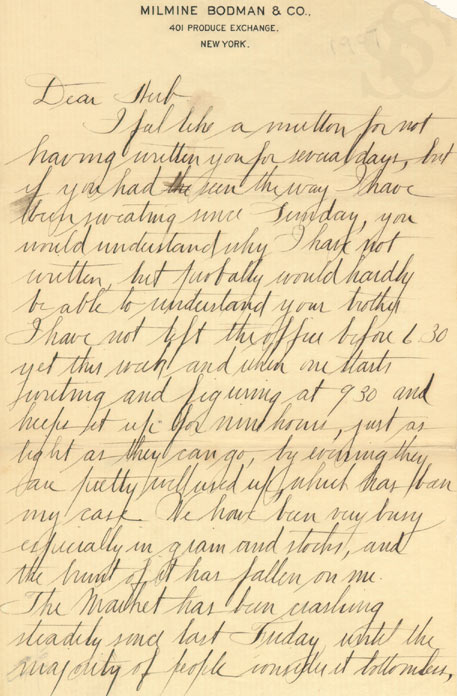 MILMINE BODMAN & CO.,
401 PRODUCE EXCHANGE,
NEW YORK.
1907
Dear Herb
I feel like a mutton for not
having written you for several days, but
if you had the seen the way I have
been sweating since Sunday, you
would understand why I have not
written, but probally would hardly
be able to understand your brother
I have not left the office before 6.30
yet this week and when one starts
writing and figuring at 9 30 and
keeps it up for nine hours, just as
tight as they can go, by evening they
are pretty well used up, which has been
my case. We have been very busy
especially in grain and stocks, and
the brunt of it has fallen on me.
The Market has been crashing
steadily since last Friday, until the
majority of people consider it bottomless,